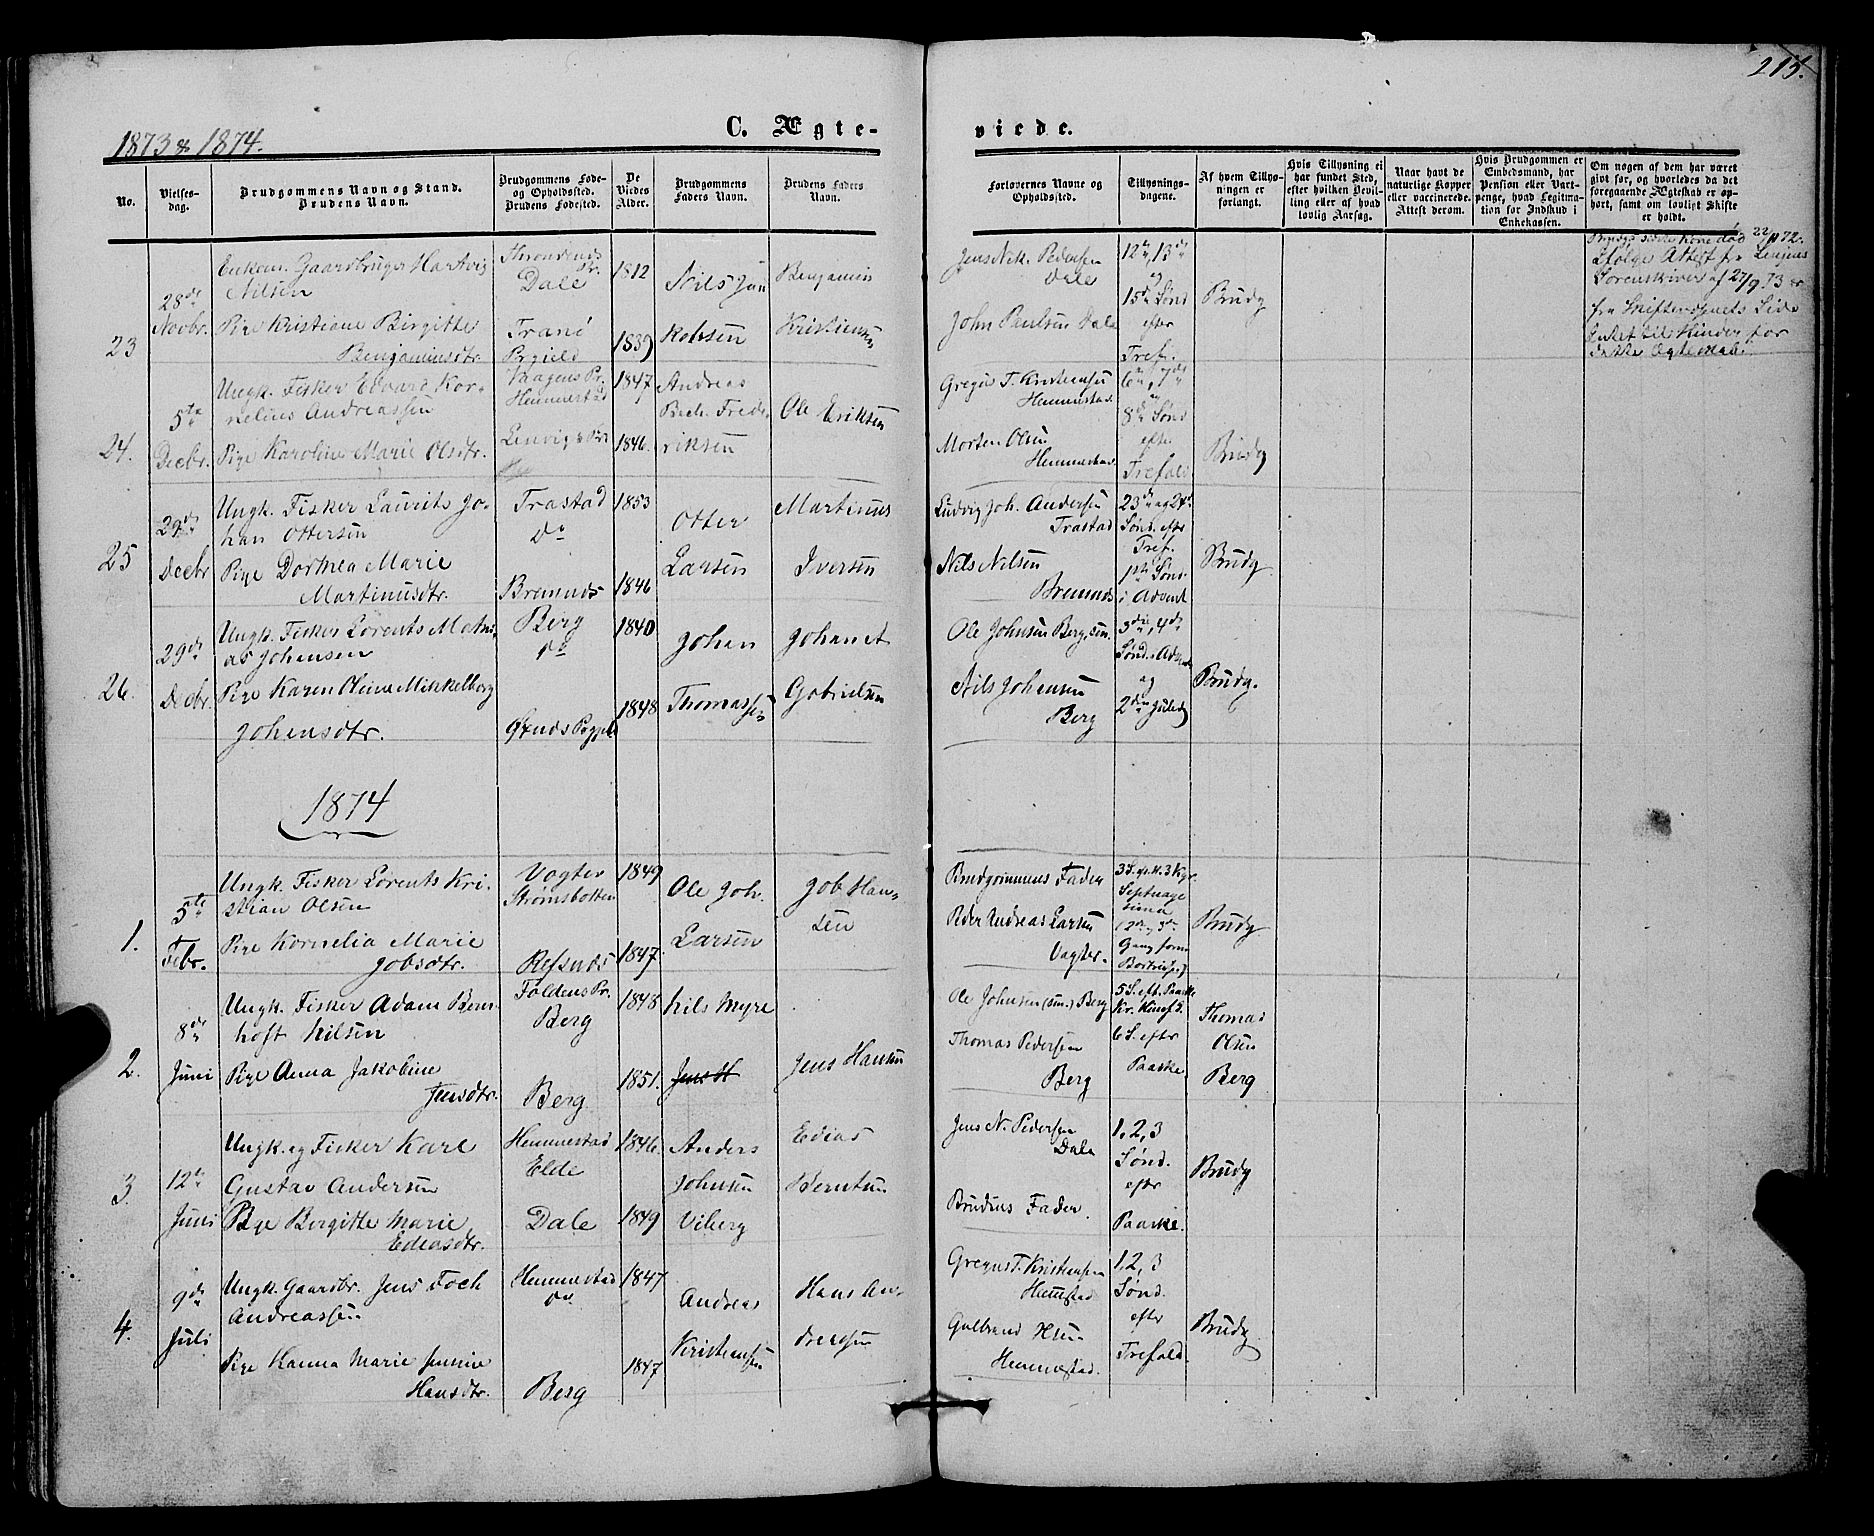 215.
1873 & 1874.
C. Ægte-
viede.
No.
Vielses-
dag.
Brudgommens Navn og Stand.
Brudens Navn.
Brudgommens Føde-
og Opholdssted.
Brudens Fødested.
De
Viedes
Alder.
Brudgommens
Faders Navn.
Brudens Faders
Navn.
Forlovernes Navne og
Opholdssted.
Tillysnings-
dagene.
Af hvem Tillys-
ningen er
forlangt.
Hvis Tillysning ei
har fundet Sted,
efter hvilken Bevil-
ling eller af hvad
lovlig Aarsag.
Naar havt de
naturlige Kopper
eller vaccinerede.
Attest derom.
Hvis Brudgommen er
Embedsmand, har
Pension eller Vart-
penge, hvad Legitima-
tion for Indskud i
Enkekassen.
Om nogen af dem har været
gift før, og hvorledes da det
foregaaende Ægteskab er op-
hørt, samt om lovligt Skifte
er holdt.
23
28de
Novbr.
Enkem. Gaardbruger Hartvig
Nilsen
Pige Kristiane Birgitte
Benjaminsdtr.
Throndenes
Pr.
Dale
Tranø
Prgjeld
1812
1839
Nils Jan
Kobsen
Benjamin
Kristiensen
Jens Nik. Pedersen
Dale
John Paulsen Dale
12te, 13de
og
15de Sønd
efter
Tref.
Brudg
døde 22/ 72.
Ifølge Attest fr Senjens
Sorenskriver af 27/9 73 er
fra Skifteretttens Side
Intet til Hinder for
dette Ægteskab.
24.
5te
Decbr.
Ungk. Fisker Edvard Kor-
nelius Andreassen
Pige Karoline Marie Olsdtr.
Vaagens Pr.
Hemmestad
Lenvig
1847
1846.
Andreas
Bach. Frede-
riksen
Ole Eriksen
Gregus T. Kristiansen
Hemmestad
Morten Olsen
Hemmestad.
6te, 7de
og
8de Sønd
efter
Trefold.
Brudg
25
29de
Decbr
Ungk. Fisker Laurits Jo-
han Ottersen
Pige Dorthea Marie
Martinusdtr.
Trastad
do
Bremnæs
1853
1846
Otter
Larsen
Martinus
Iversen
Ludvig Joh. Andersen
Trastad
Nils Nilsen
Bremnæs
23de og 24de
Sønd. efter
Tref.
1ste Sønd.
i Advent
Brudg
26.
29de
Decbr.
Ungk. Fisker Lorents Mathi-
as Johansen
Pige Karen Oline Mikkelborg
Johansdtr.
Berg
do
Øxnæs Prgjeld
1840
1848
Johan
Thomassen
Johan A
Gabrielsen
Ole Johnsen Berg, sen.
Nils Johansen
Berg
3die, 4de
Sønd. i Advent
og
2den Juledg
Brudg.
1874
1.
5te
Febr.
Ungk. Fisker Lorents Kri-
stian Olsen
Pige Kornelia Marie
Jobsdtr.
Vogter
Strømsbotten
Refsnæs
1849
1847.
Ole Joh.
Larsen
Job Han-
sen
Brudgommens Fader
Peder Andreas Larsen
Vagter.
Septuage
sima
Brudg
2.
8de
Juni
Ungk. Fisker Adam Bern-
hoft Nilsen
Pige Anna Jakobine
Jensdtr.
Foldens Pr.
Berg
Berg
1848
1851.
Nils Myre
Jens H
Jens Hansen
Ole Johnsen (sen.) Berg
Thomas Pedersen
Berg
5 S. eft. Paaske
Kr. Himf. d.
6 S. efter
Paaske.
Thomas
Olsen
Berg
3
12te
Juni
Ungk. og Fisker Karl
Gustav Andersen
Pige Bergitte Marie
Ediasdtr.
Hemmestad
Elde
Dale
1846.
1849
Anders
Johnsen
Viberg
Edias
Berntsen
Jens N. Pedersen
Dale
Brudens Fader.
1, 2, 3
Sønd.
efter
Paaske.
Brudg
4.
9de
Juli
Ungk. Gaardbr. Jens Foch
Andreassen
Pige Hanna Marie Jensine
Hansdtr.
Hemmestad
do.
Berg
1847
1847
Andreas
Kristiansen
Hans An-
dreassen
Gregus T. Kristiansen
Hemmestad
Gulbrand Hsen
Hemmestad.
1, 2, 3
Sønd.
efter
Trefold.
Brudg.